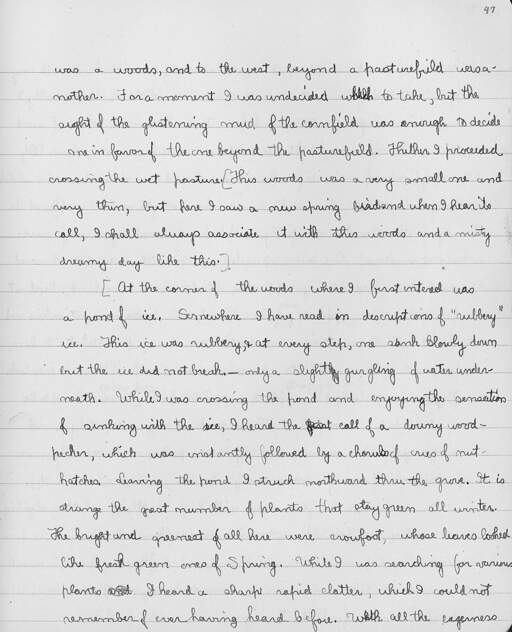 97
was a woods, and to the west, beyond a pasturefield was a-
nother. For a moment I was undecided which to take, but the
sight of the glistening mud of the cornfield was enough to decide
me in favor of the one beyond the pasturefield. Thither I proceeded
crossing the wet pasture. [This woods was a very small one and
very thin, but here I saw a new spring bird and when I hear its
call, I shall always associate it with this woods and a misty
dreamy day like this.]
[At the corner of the woods where I first entered was
a pond of ice. Somewhere I have read in descriptions of "rubbery"
ice. This ice was rubbery, & at every step, one sank slowly down
but the ice did not break — only a slightly gurgling of water under-
neath. While I was crossing the pond and enjoying the sensation
of sinking with the ice, I heard the call of a downy wood-
pecker, which was instantly followed by a chorus of cries of nut-
hatches. Leaving the pond I struck northward thru the grove. It is
strange the great number of plants that stay green all winter.
The bright and greenest of all here were crowfoot, whose leaves looked
like fresh green ones of Spring. While I was searching for various
plants I heard a sharp rapid clatter, which I could not
remember of ever having heard before. With all the eagerness